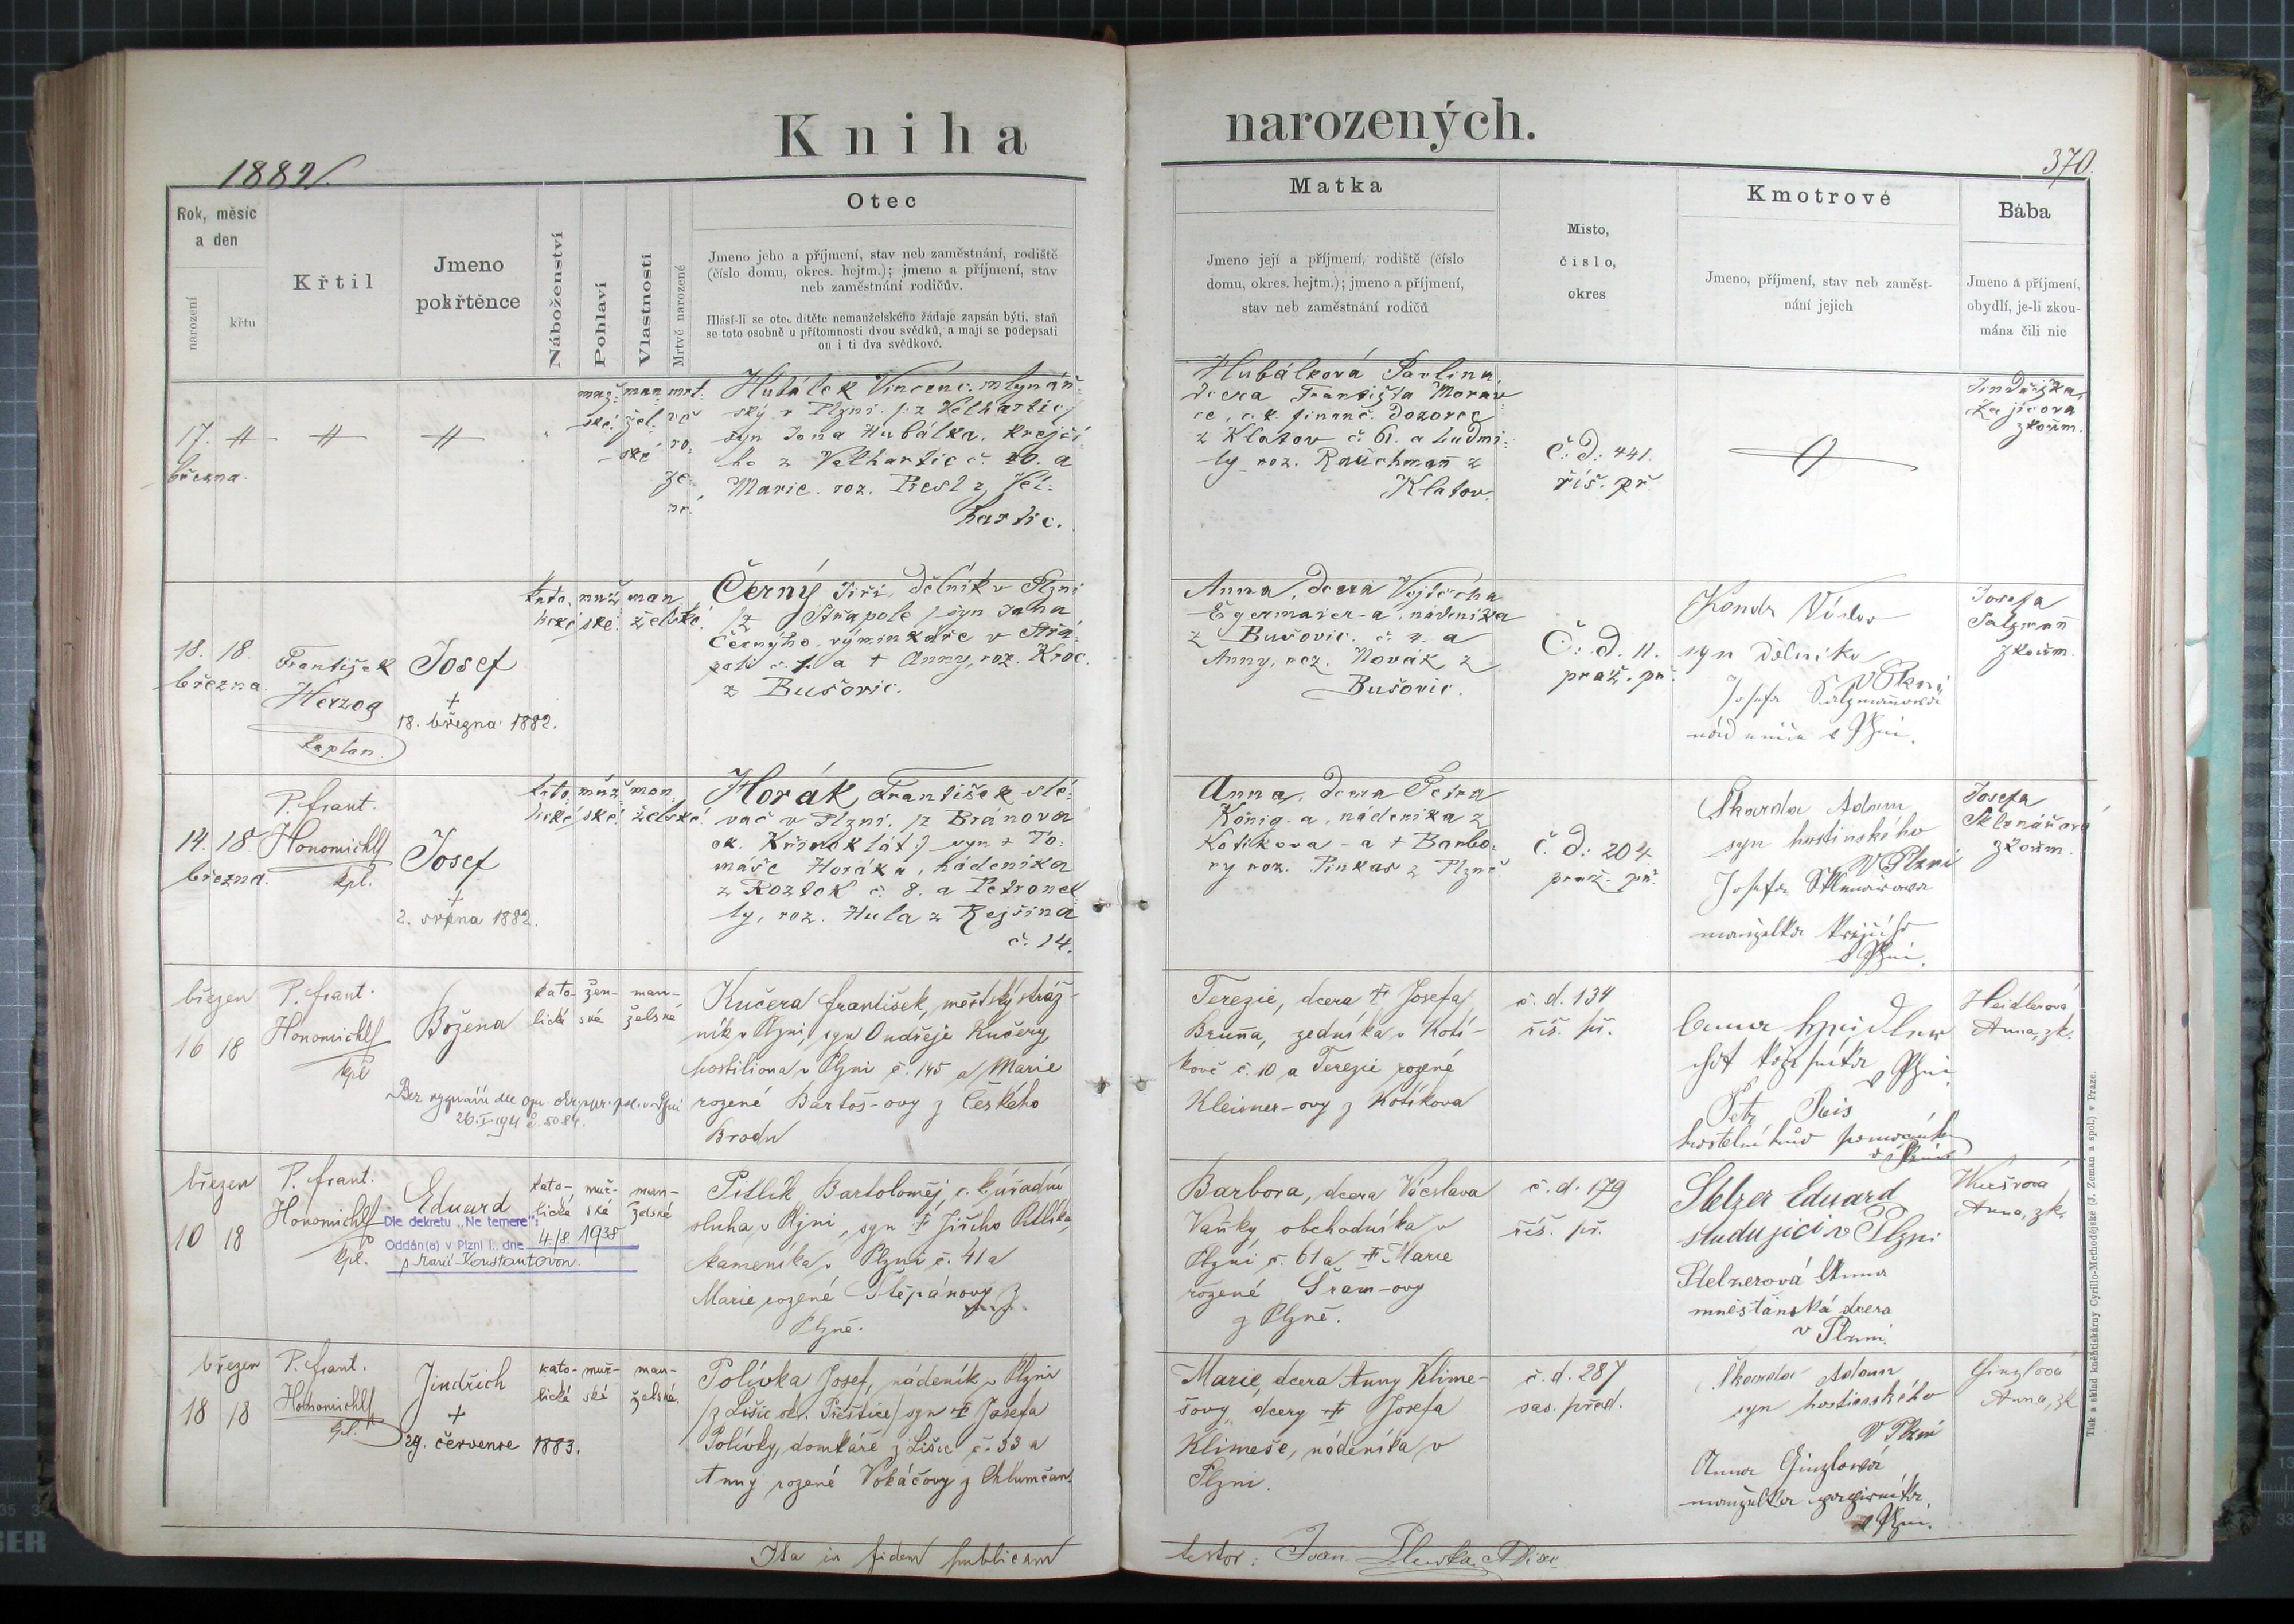 Kniha
narozených.
1882
370.
Rok, měsíc
a den
narození
křtu
Křtil
Jmeno
pokřtěnce
Náboženství
Pohlaví
Vlastnosti
Mrtvě narozené
Otec
Jmeno jeho a příjmení, stav neb zaměstnání, rodiště
(číslo domu, okres. hejtm.); jmeno a příjmení, stav
neb zaměstnání rodičův.
Hlásí-li se otec dítěte nemanželského žádaje zapsán býti, staň
se toto osobně u přítomnosti dvou svědků, a mají se podepsati
on i ti dva svědkové.
Matka
Jmeno její a příjmení, rodiště (číslo
domu, okres. hejtm.); jmeno a příjmení,
stav neb zaměstnání rodičů
Místo,
číslo,
okres
Kmotrové
Jmeno, příjmení, stav neb zaměst-
nání jejich
Bába
Jmeno a příjmení,
obydlí, je-li zkou-
mána čili nic
17.
března.
muž- man- mrt-
ské. žel- vě
ské ro-
ze-
Hubálek Vincenc, mlynář-
ský v Plzni (z Velhartic)
syn Jana Hubálka, krejčí-
ho z Velhartic č. 10. a
Marie roz.
hartic.
Hubálková Paulina,
dcera Františka Moráv
ce, c.k. finanč. dozorce
z Klatov č. 61. a Ludmi-
ly roz. Rauchman z
Klatov.
Č. d. 441.
říš. př.
Jindřiška
Zajícova
zkoum.
18. 18.
března.
František
Herzog
kaplan
Josef
+
18. března 1882.
kato- muž- man
lické ské. želské.
Černý Jiří, dělník v Plzni
/z Střapole/ syn Jana
Černýho, výminkáře v Střa-
poli č. 1. a + Anny, roz. Kroc.
z Bušovic.
Anna, dcera Vojtěcha
Egermaier-a, nádeníka
z Bušovic. č. 4. a
Anny, roz. Novák z
Bušovic.
Č. d. 11.
praž. př.
syn dělníka
v Plzni
Josefa Salzmannová
v Plzni.
Josefa
Salzmann
zkoum.
14. 18.
března.
P. Frant.
Honomichl
kpl.
Josef
+
2. srpna 1882.
kato- muž- man
lické ské. želské.
Horák František slé-
vač v Plzni, (z Branova
ok. Křivoklát) syn + To-
máše Horáka, nádeníka
z Roztok č. 8. a Petronel
ly, roz. Hula z Rejšina
č. 14.
Anna, dcera Petra
König-a, nádeníka z
Kotíkova - a + Barbo-
ry roz. Pinkas z Plzně.
č. d: 204.
praž. př.
Škarda Adam
syn hostinského
v Plzni
Josefa Sklenářova
manželka krejčího
v Plzni.
Josefa
Sklenářová
zkoum.
březen
16 18
P. frant.
Honomichl
kpl
Božena
kato- žen- man-
lické ské želské
26. I. 1941 č. 5084.
Kučera František, městský stráž-
ník v Plzni, syn Ondřeje Kučery,
postiliona v Plzni č. 145 a Marie
rozené Bartoš-ovy z Českého
Brodu
Terezie, dcera + Josefa
Bruna, zedníka v Kotí-
kově č. 10 a Terezie rozené
Kleisner-ovy z Kotíkova
č. d. 134
říš. př.
v Plzni
Petr Reis
Heidlerová
Anna, zk.
březen
10 18
P. frant.
Honomichl
kpl.
Eduard
Dle dekretu „Ne temere":
Oddán(a) v Plzni I., dne 4./8. 1938
s Marií Konstantovou.
kato- muž- man-
lické ské želské
Pitlík Bartoloměj, c. k. úřadní
sluha v Plzni, syn + Jiřího Pitlíka,
kameníka v Plzni č. 41 a
Marie rozené Štěpánovy z
Plzně.
Barbora, dcera Václava
Vaňky, obchodníka v
Plzni č. 61 a + Marie
rozené Šram-ovy
z Plzně.
č. d. 179
říš. př.
Stelzer Eduard
studující v Plzni
Stelzerová Anna
měšťanská dcera
v Plzni.
Anna, zk.
březen
18 18
P. frant.
Honomichl
kpl.
Jindřich
+
29. července 1883.
kato- muž- man-
lické ské želské.
Polívka Josef, nádeník v Plzni
/z Lišic okr. Přeštice/ syn + Josefa
Polívky, domkáře z Lišic č. 33 a
Anny rozené Vokáčovy z Chlumčan
Marie, dcera Anny Klime-
šovy, dcery + Josefa
Klimeše, nádeníka v
Plzni.
č. d. 287
sas. před.
Škarda Adam
syn hostinského
v Plzni
Anna Ginzlová
manželka
v Plzni.
Ginzlová
Anna, zk
Ita in fidem publicam
testor: Joan.
Tisk a sklad knihtiskárny Cyrillo-Methodějské (J. Zeman a spol.) v Praze.